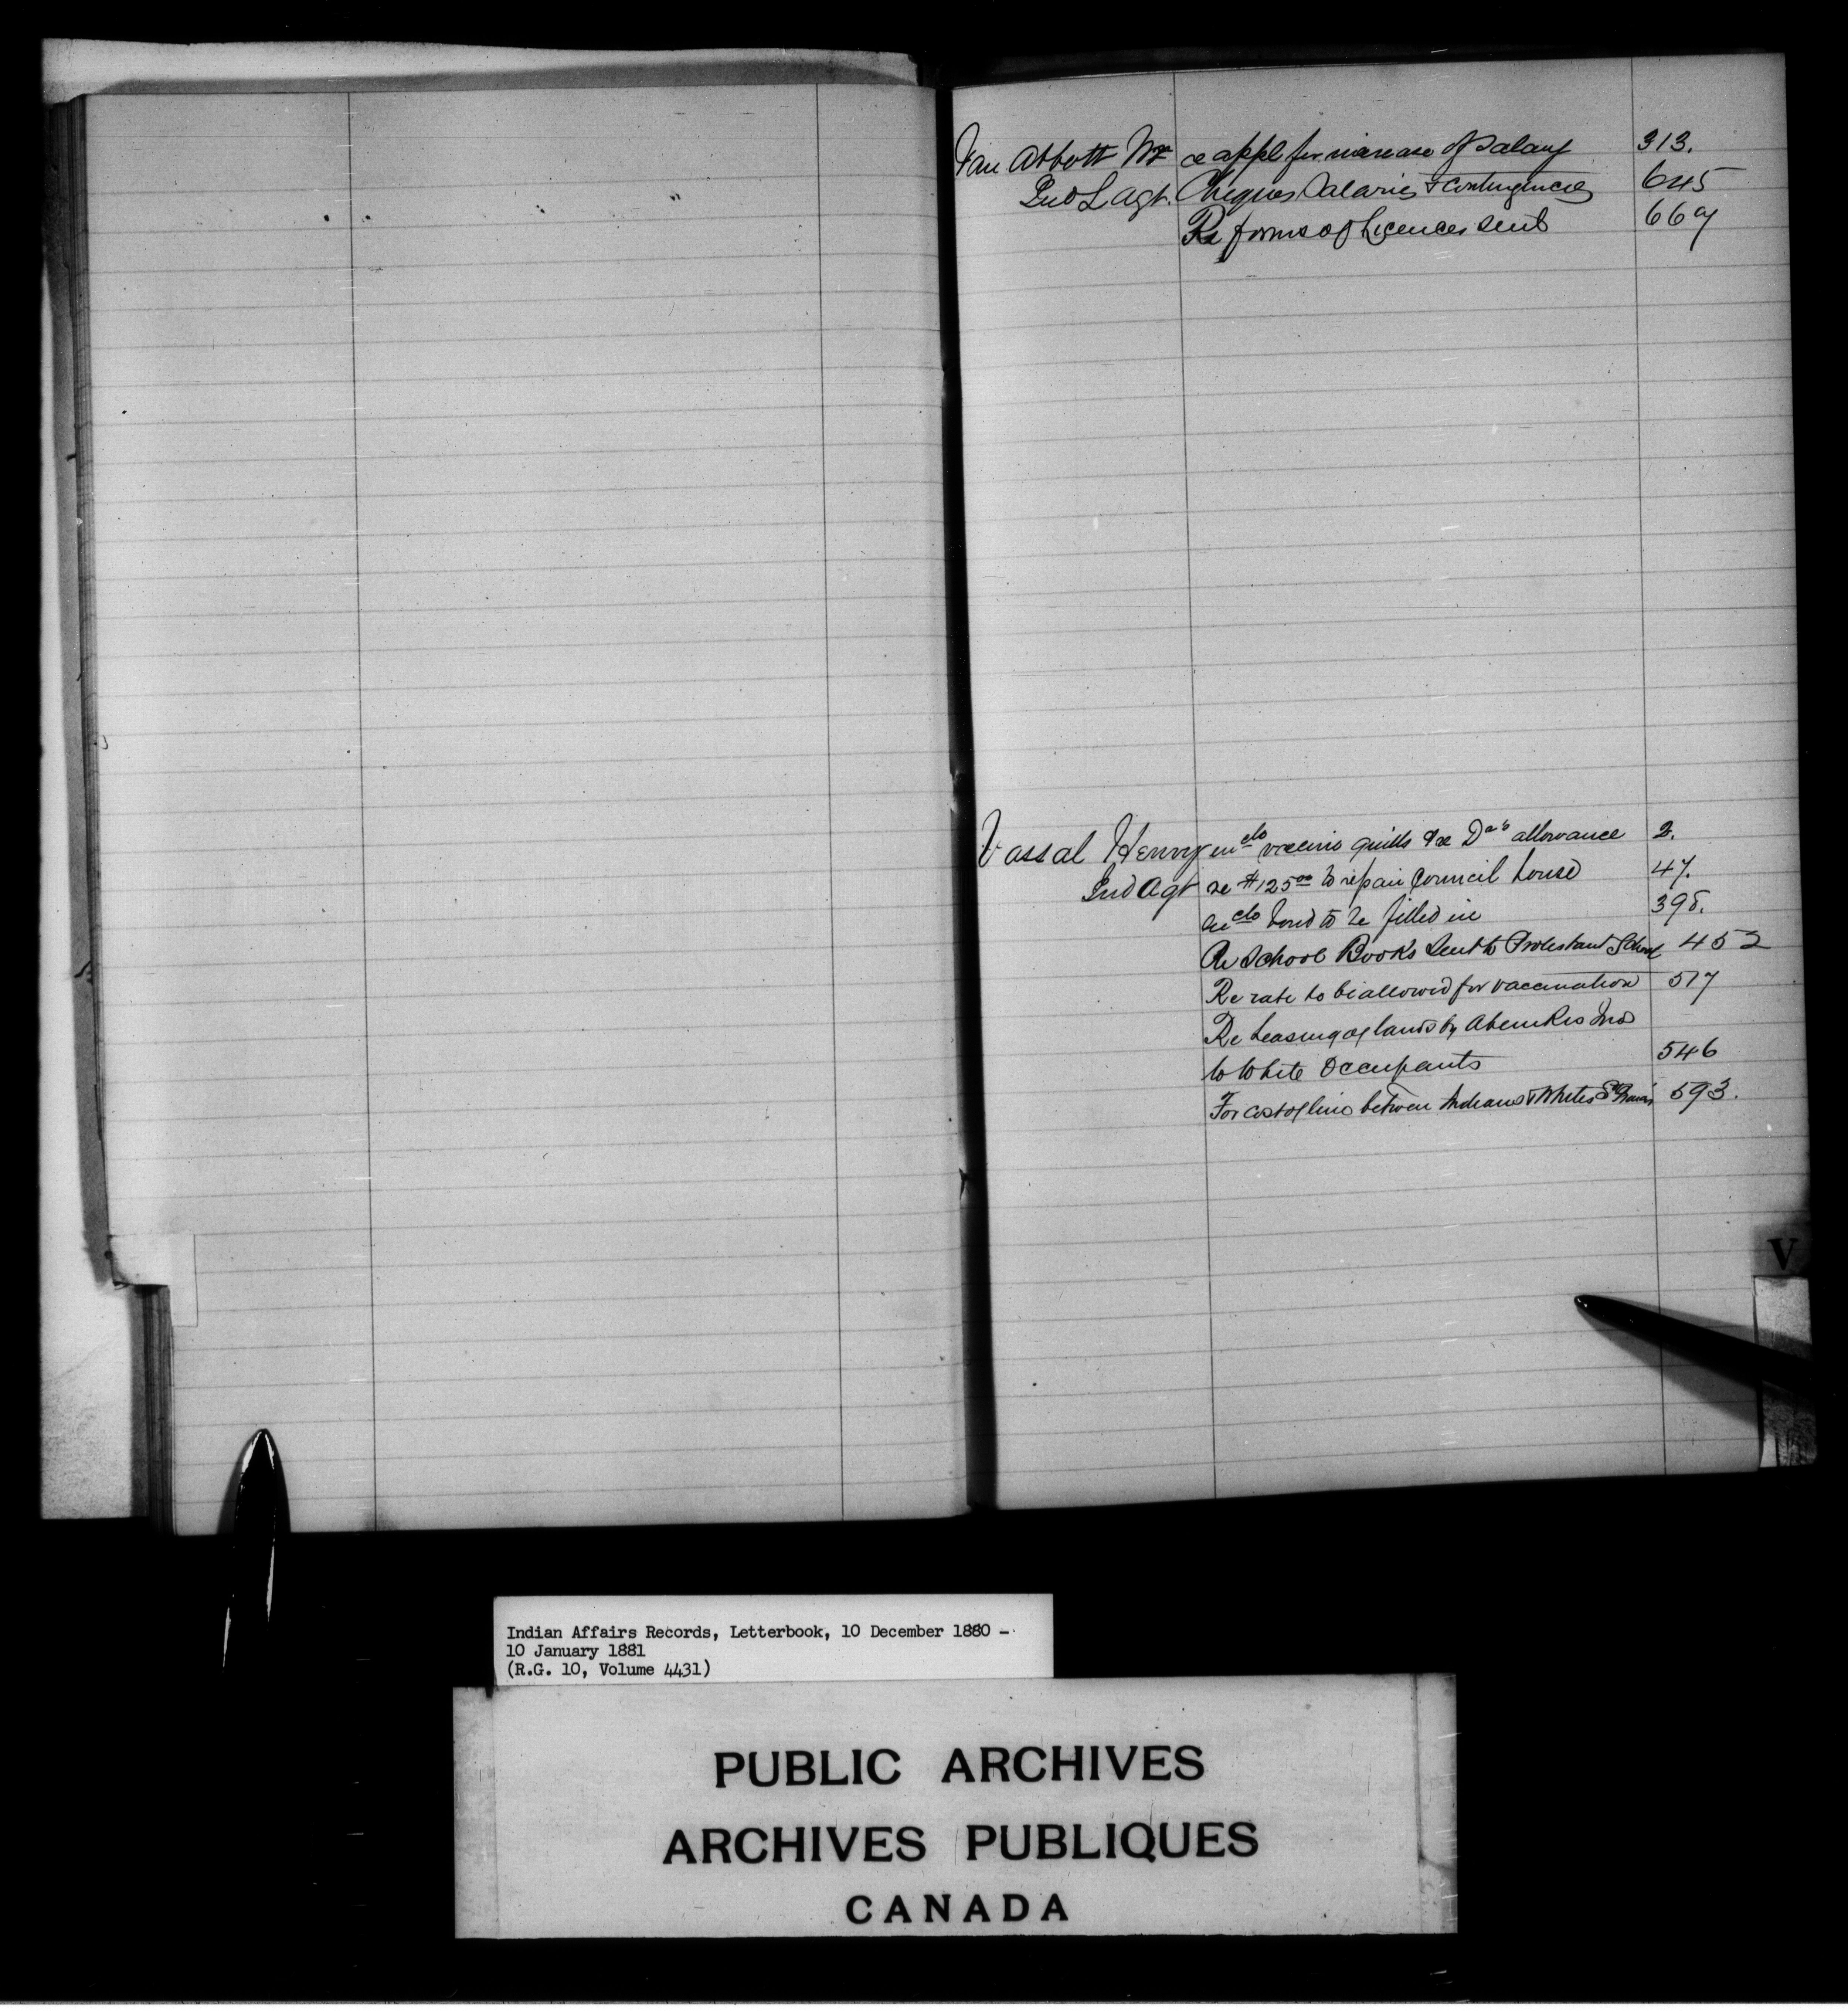 Van Abbott Wm re appl for increase of Salary 313.
Ind L Agt. Cheques Salaries & Contingencies 645
Re forms of Licences sent 669
Vassal Henry enclo vaccine quills &re Drs allowance 2.
Ind Agt re $125.00 to repair Council house 47.
enclo bond to be filled in 398.
Re School Books sent to Protestant School 452
Re rate to be allowed for vaccination 517
Re Leasing of lands by Abenakis Inds
to White Occupants 546
For cost of line between Indians & Whites St Francis 593.
V
Indian Affairs Records, Letterbook, 10 December 1880 –
10 January 1881
(R.G. 10, Volume 4431)
PUBLIC ARCHIVES
ARCHIVES PUBLIQUES
CANADA